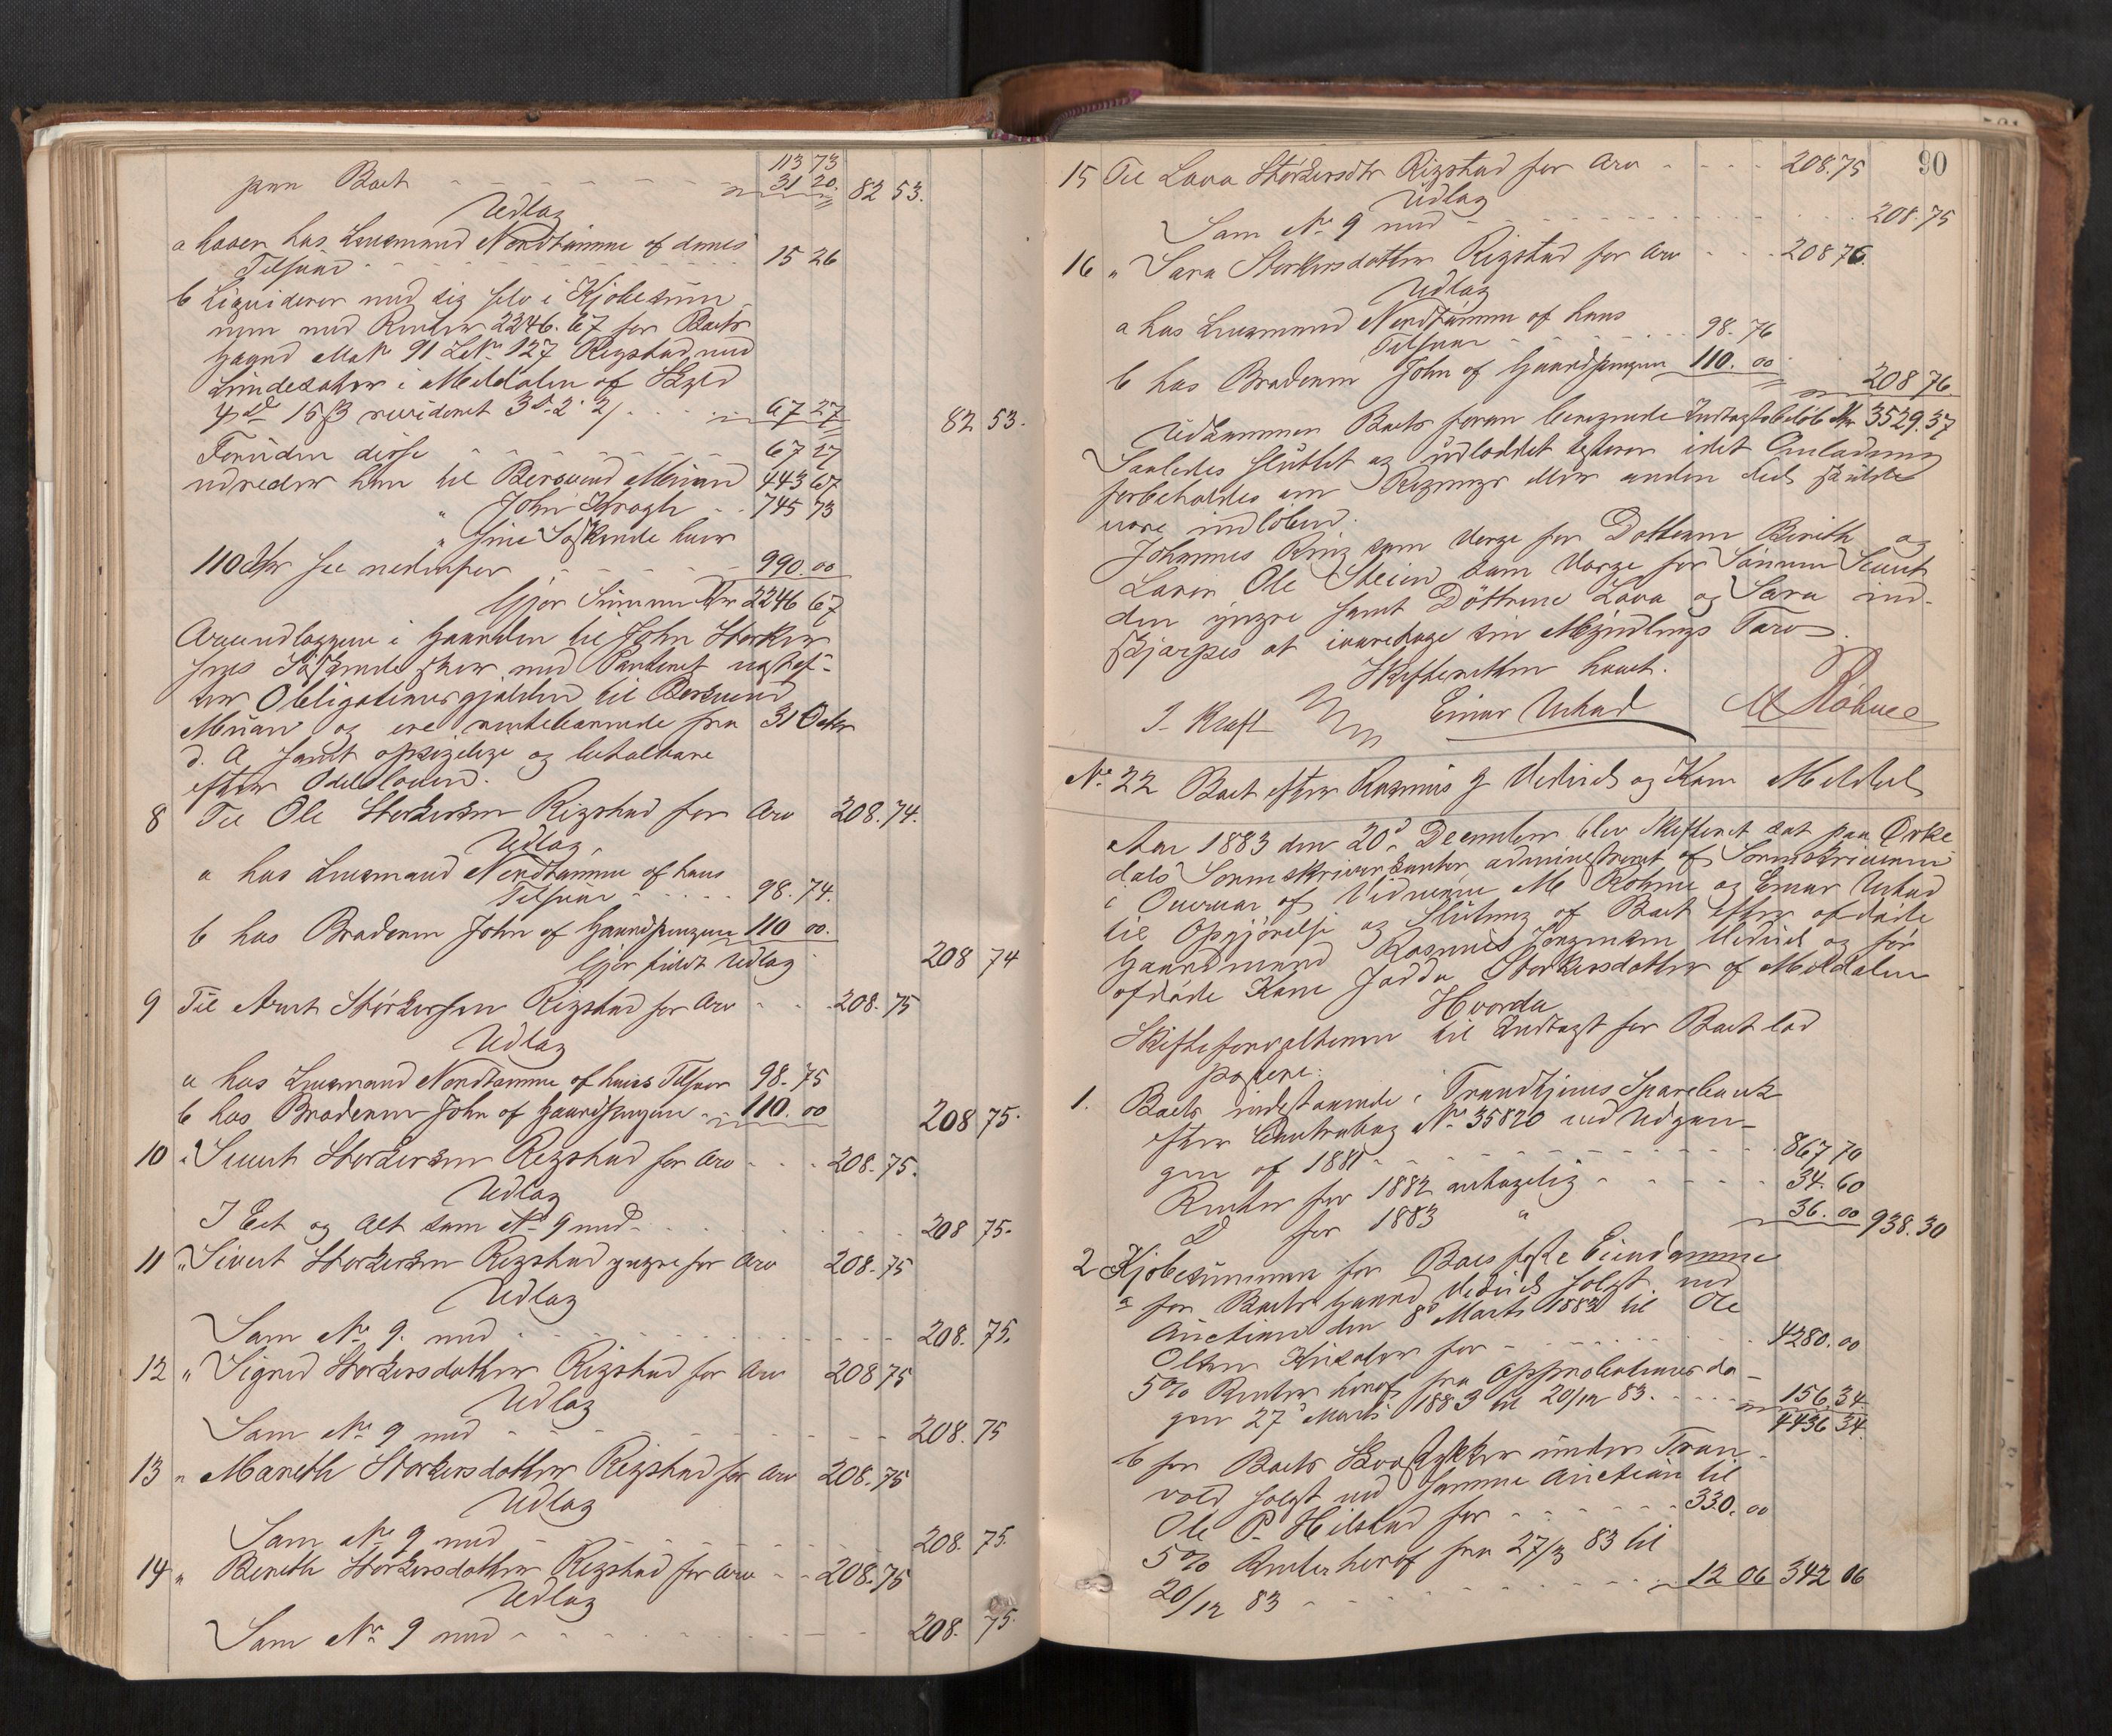 113 73
paa Boet - - - - - - 31 20. 82 53.
Udlæg
a haver hos Lensmand Nordtømme af dennes
Tilsvar - - - - 15 26
b Liqviderer med sig selv i Kjøbesum
men med Renter 2246.67 for Boets
Gaard Mat No 91 L No 127 Rigstad med
Lundesaker i Meldalen af Skyld
4 d 15 β revideret 3 d. 2. 2/ - - - 67 27 82 53.
Foruden disse - - - - 67 27
udreder han til Bersvend Muan 443 67
" John Krogh - - 745 73
" sine Søskende hver
110 Kr see nedenfor - - - - 990.00
Gjør Summa Kr 2246 67
Arveudlæggene i Gaarden til John Størker
sens Søskende sker med Panteret næstef-
ter Obligationsgjælden til Bersvend
Muan og ere rentebærende fra 31 Octbr
d. A. samt opsigelige og betalbare
efter Odelsloven.
8 Til Ole Størkersen Rigstad for Arv 208.74.
Udlæg
a hos Lensmand Nordtømme af hans
Tilsvar - - - - 98.74.
b hos Broderen John af Gaardspengene 110 00.
Gjør fuldt Udlæg 208 74
9 Til Arnt Størkersen Rigstad for Arv - - 208.75
Udlæg
a hos Lensmand Nordtømme af hans Tilsvar 98.75
b hos Broderen John af Gaardspengene - 110.00 208 75.
10 " Sivert Størkersen Rigstad for Arv - - - 208.75.
Udlæg
I Eet og Alt som No 9 med - - - - 208 75.
11 " Sivert Størkersen Rigstad yngre for Arv 208.75
Udlæg
Som No 9. med - - - - 208.75.
12 " Sigrid Størkersdatter Rigstad for Arv 208 75
Udlæg
Som No 9 med - - - - 208.75
13 " Mareth Størkersdatter Rigstad for Arv 208.75
Udlæg
Som No 9 med - - - - 208.75.
14 " Bereth Størkersdatter Rigstad for Arv - - 208.75
Udlæg
Som No 9 med - - - - 208.75.
90
15 Til Lava Størkersdtr Rigstad for Arv - - - - 208.75
Udlæg
Som No 9 med - - - - 208.75
16 " Sara Størkersdatter Rigstad for Arv - - - 208 76.
Udlæg
a hos Lensmand Nordtømme af hans
Tilsvar - - - - 98.76
b hos Broderen John af Gaardspengene 110.00 208 76.
Udkommen Boets foran beregnede Indtægtsbeløb Kr 3529.37
Saaledes sluttet og udloddet testerer idet Omlodning
forbeholdes om Regnings eller anden Feil skulde
være indløben.
Johannes Ring som Verge for Datteren Berith og
Laver Ole Steien som Verge for Sønnen Sivert
den yngre samt Døttrene Lava og Sara ind-
skjærpes at ivaretage sin Myndlings Tarv.
Skifteretten hævet.
I. Kraft Einar Ustad M Röhme
No. 22 Boet efter Rasmus J Uduels og Kone Meldal
Aar 1883 den 20de December blev Skifteret sat paa Orke
dals Sorenskriverkontor administreret af Sorenskriveren
i Overvær af Vidnerne M Röhme og Einar Ustad
til Opgjørelse og Slutning af Boet efter afdøde
Gaardmand Rasmus Jørgensen og før
afdøde Kone Jødda Størkersdatter af Meldalen
Hvorda
Skifteforvalteren til Indtægt for Boet lod
postere:
1. Boets indestaaende i Trondhjems Sparebank
efter Contrabog No 35820 ved Udgan-
gen af 1881 - - - - 867 70
Renter for 1882 antagelig - - - - 34.60
D for 1883 " 36.00 938.30
2 Kjøbesummen for Boets faste Eiendomme
a for Boets Gaard solgt ved
Auction den 8de Marts 1883 til Ole
Olsen for - - - - 4280.00
5% Renter heraf fra Approbationsda-
gen 27de Marts 1883 til 20/12 83. - - - 156.34.
4436 34.
b for Boets Skovstykker under
solgt ved samme Auction til
Ole P. Hilstad for - - - - 330.00
5% Renter heraf fra 27/3 83 til
20/12 83 - - - - 12 06 342 06